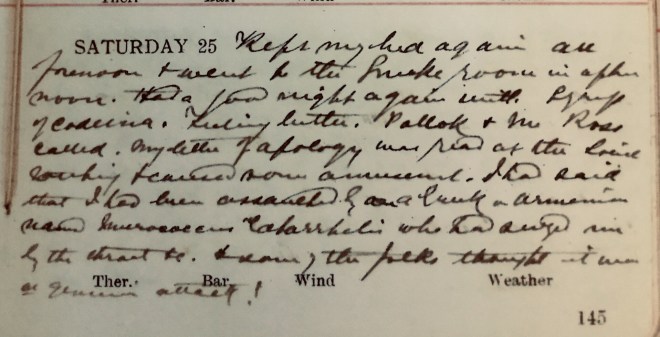 Ther. Bar. Wind
SATURDAY 25 Kept my bed again all
forenoon & went to the Smoke room in after
noon. Had a good night again with Syrup
of Codeina. Feeling better. Pollok & Mr Ross
called. My letter of apology was read at the
& caused some amusement. I had said
that I had been assaulted by a Greek or Armenian
named Micrococcus Catarrhalis who had seized me
by the throat &c. & some of the folks thought it was
a genuine attack!
Ther. Bar. Wind Weather
145